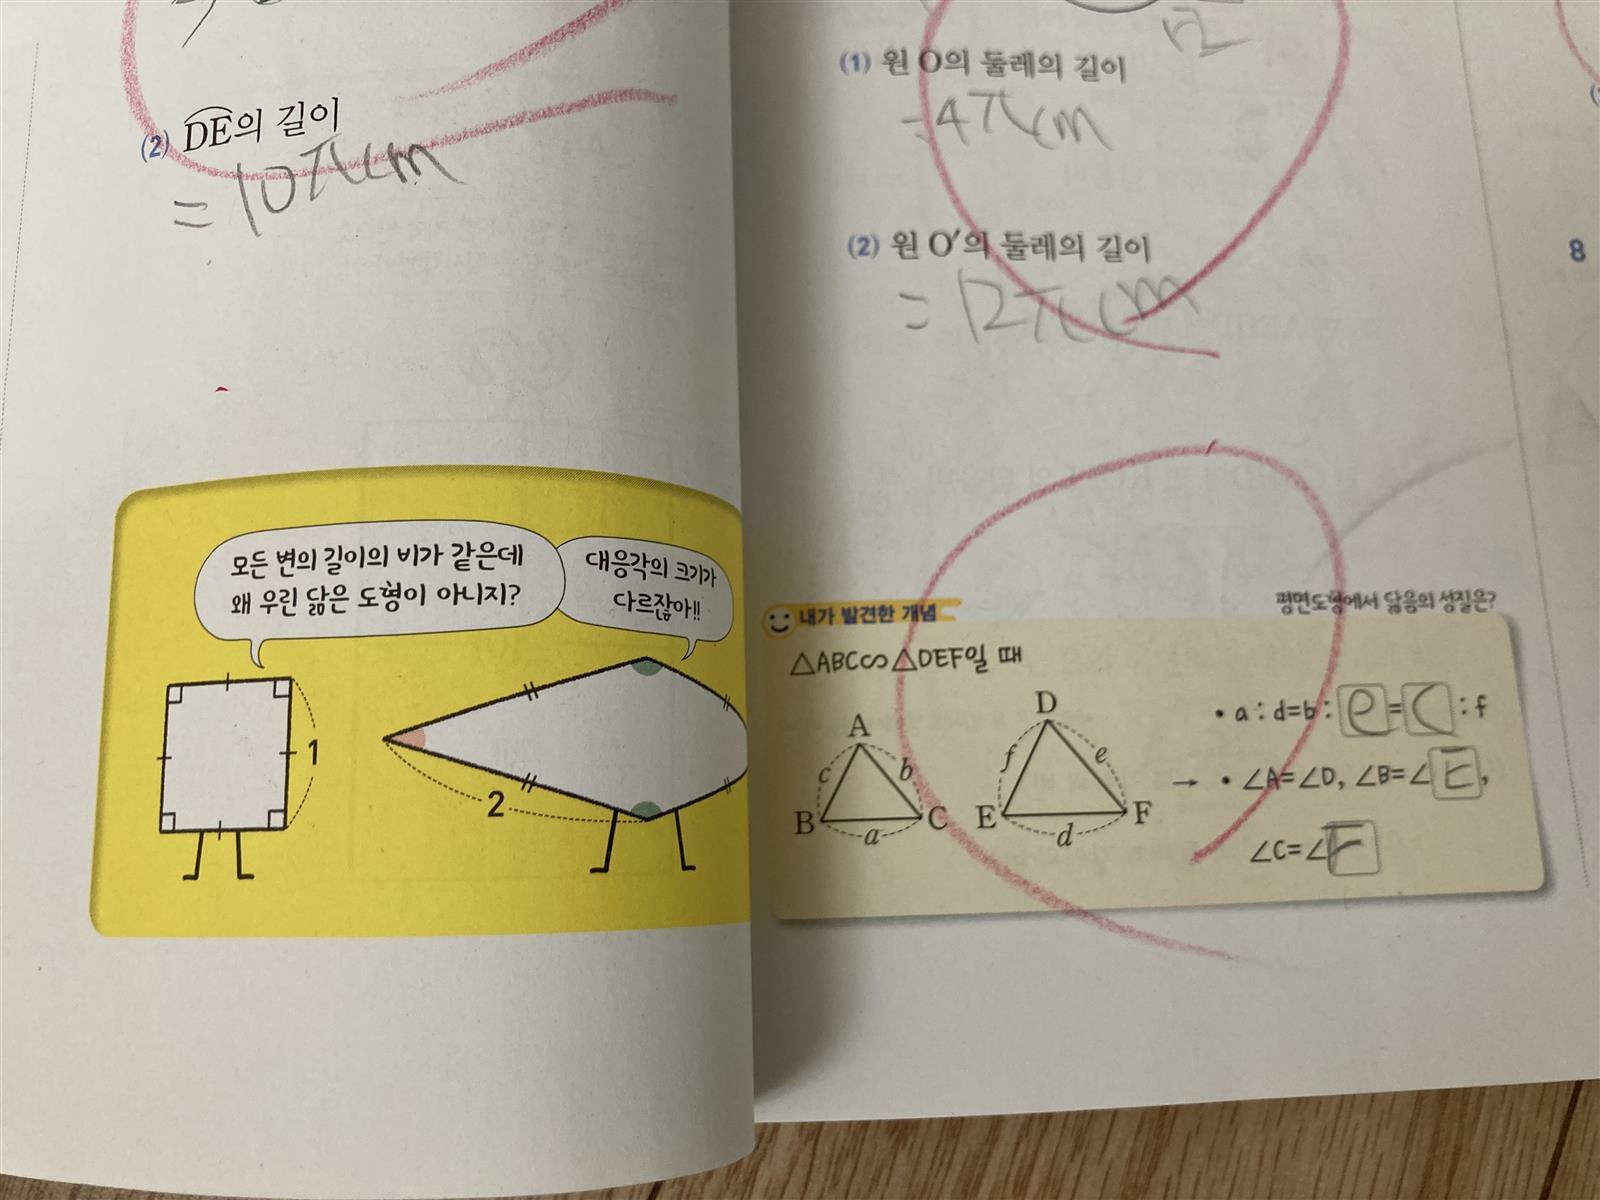 (2) DE의 길이
= 10πcm
모든 변의 길이의 비가 같은데
왜 우린 닮은 도형이 아니지?
대응각의 크기가
다르잖아!!
1
2
(1) 원 O의 둘레의 길이
=4πcm
(2) 원 O′의 둘레의 길이
= 12πcm
8
내가 발견한 개념
평면도형에서 닮음의 성질은?
△ABC∽△DEF일 때
A
B
C
c
b
a
D
E
F
f
e
d
• a : d=b : e = c : f
→ • ∠A=∠D, ∠B=∠E,
∠C=∠F